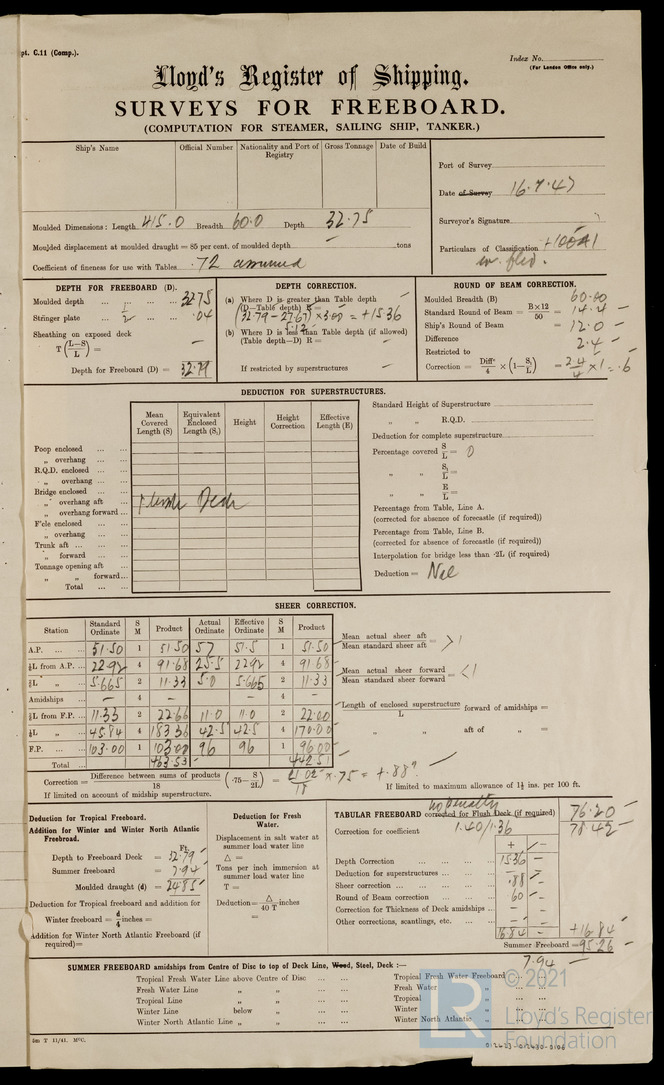 pt. C.11 (Comp.).
Index No.
(For London Office only.)
Lloyd's Register of Shipping.
SURVEYS FOR FREEBOARD.
(COMPUTATION FOR STEAMER, SAILING SHIP, TANKER.)
Ship's Name Official Number Nationality and Port of Registry Gross Tonnage Date of Build
Port of Survey
Date of Survey 16.7.47
Surveyor's Signature
Particulars of Classification +100A1
Moulded Dimensions: Length 415.0 Breadth 60.0 Depth 32.75
Moulded displacement at moulded draught = 85 per cent. of moulded depth tons
Coefficient of fineness for use with Tables .72 assumed
DEPTH FOR FREEBOARD (D).
Moulded depth ... ... ... 32.75
Stringer plate ... ... ... .04
Sheathing on exposed deck
T (L-S/L) = —
Depth for Freeboard (D) = 32.79
DEPTH CORRECTION.
(a) Where D is greater than Table depth
(D—Table depth) R =
(32.79 - 27.67) × 3.00 = +15.36
5.12
(b) Where D is less than Table depth (if allowed)
(Table depth—D) R = —
If restricted by superstructures —
ROUND OF BEAM CORRECTION.
Moulded Breadth (B) 60.00
Standard Round of Beam = B×12/50 = 14.4
Ship's Round of Beam = 12.0
Difference 2.4
Restricted to
Correction = Diffce/4 × (1-S1/L) = 2.4/4 × 1 = .6
DEDUCTION FOR SUPERSTRUCTURES.
Mean Covered Length (S) Equivalent Enclosed Length (S1) Height Height Correction Effective Length (E)
Poop enclosed ... ...
„ overhang ... ...
R.Q.D. enclosed ... ...
„ overhang ...
Bridge enclosed ... ...
„ overhang aft ...
„ overhang forward ...
F'cle enclosed ...
„ overhang ...
Trunk aft ... ... ...
„ forward ... ...
Tonnage opening aft
„ „ forward ...
Total ... ...
Flush Deck
Standard Height of Superstructure
„ „ R.Q.D.
Deduction for complete superstructure
Percentage covered S/L = 0
„ „ S1/L =
„ „ E/L =
Percentage from Table, Line A.
(corrected for absence of forecastle (if required))
Percentage from Table, Line B.
(corrected for absence of forecastle (if required))
Interpolation for bridge less than ·2L (if required)
Deduction = Nil
SHEER CORRECTION.
Station Standard Ordinate S M Product Actual Ordinate Effective Ordinate S M Product
A.P. ... ... 51.50 1 51.50 57 51.5 1 51.50
⅙L from A.P. ... 22.92 4 91.68 25.5 22.92 4 91.68
⅓L „ ... 5.665 2 11.33 5.0 5.665 2 11.33
Amidships ... — 4 — — 4 —
⅓L from F.P. ... 11.33 2 22.66 11.0 11.0 2 22.00
⅙L „ ... 45.84 4 183.36 42.5 42.5 4 170.00
F.P. ... ... 103.00 1 103.00 96 96 1 96.00
Total ... ... 463.53 442.51
Mean actual sheer aft / Mean standard sheer aft = >1
Mean actual sheer forward / Mean standard sheer forward = <1
Length of enclosed superstructure / L forward of amidships =
„ „ aft of „ =
Correction = Difference between sums of products / 18 (·75- S/2L) = 21.02/18 × .75 = +.88"
If limited on account of midship superstructure.
If limited to maximum allowance of 1½ ins. per 100 ft.
Deduction for Tropical Freeboard.
Addition for Winter and Winter North Atlantic Freeboard.
Ft.
Depth to Freeboard Deck = 32.79
Summer freeboard = 7.94
Moulded draught (d) = 24.85
Deduction for Tropical freeboard and addition for
Winter freeboard = d/4 inches =
Addition for Winter North Atlantic Freeboard (if required) =
Deduction for Fresh Water.
Displacement in salt water at summer load water line
Δ =
Tons per inch immersion at summer load water line
T =
Deduction = Δ/40 T inches
=
no penalty
TABULAR FREEBOARD corrected for Flush Deck (if required) 76.20
Correction for coefficient 1.40/1.36 78.42
+ —
Depth Correction ... ... ... ... 15.36 —
Deduction for superstructures ... ... —
Sheer correction ... ... ... ... .88 —
Round of Beam correction ... ... .60 —
Correction for Thickness of Deck amidships ... — —
Other corrections, scantlings, etc. ... ... — —
16.84 — +16.84
Summer Freeboard = 95.26
7.94
SUMMER FREEBOARD amidships from Centre of Disc to top of Deck Line, Wood, Steel, Deck :—
Tropical Fresh Water Line above Centre of Disc ... ...
Fresh Water Line „ „ ... ...
Tropical Line „ „ ... ...
Winter Line below „ ... ...
Winter North Atlantic Line „ „ ... ...
Tropical Fresh Water Freeboard
Fresh Water „ ... ...
Tropical „ ... ...
Winter „ ... ...
Winter North Atlantic „ ... ...
LR
© 2021
Lloyd's Register
Foundation
5m T 11/41. MCC.
012423-012430-0106